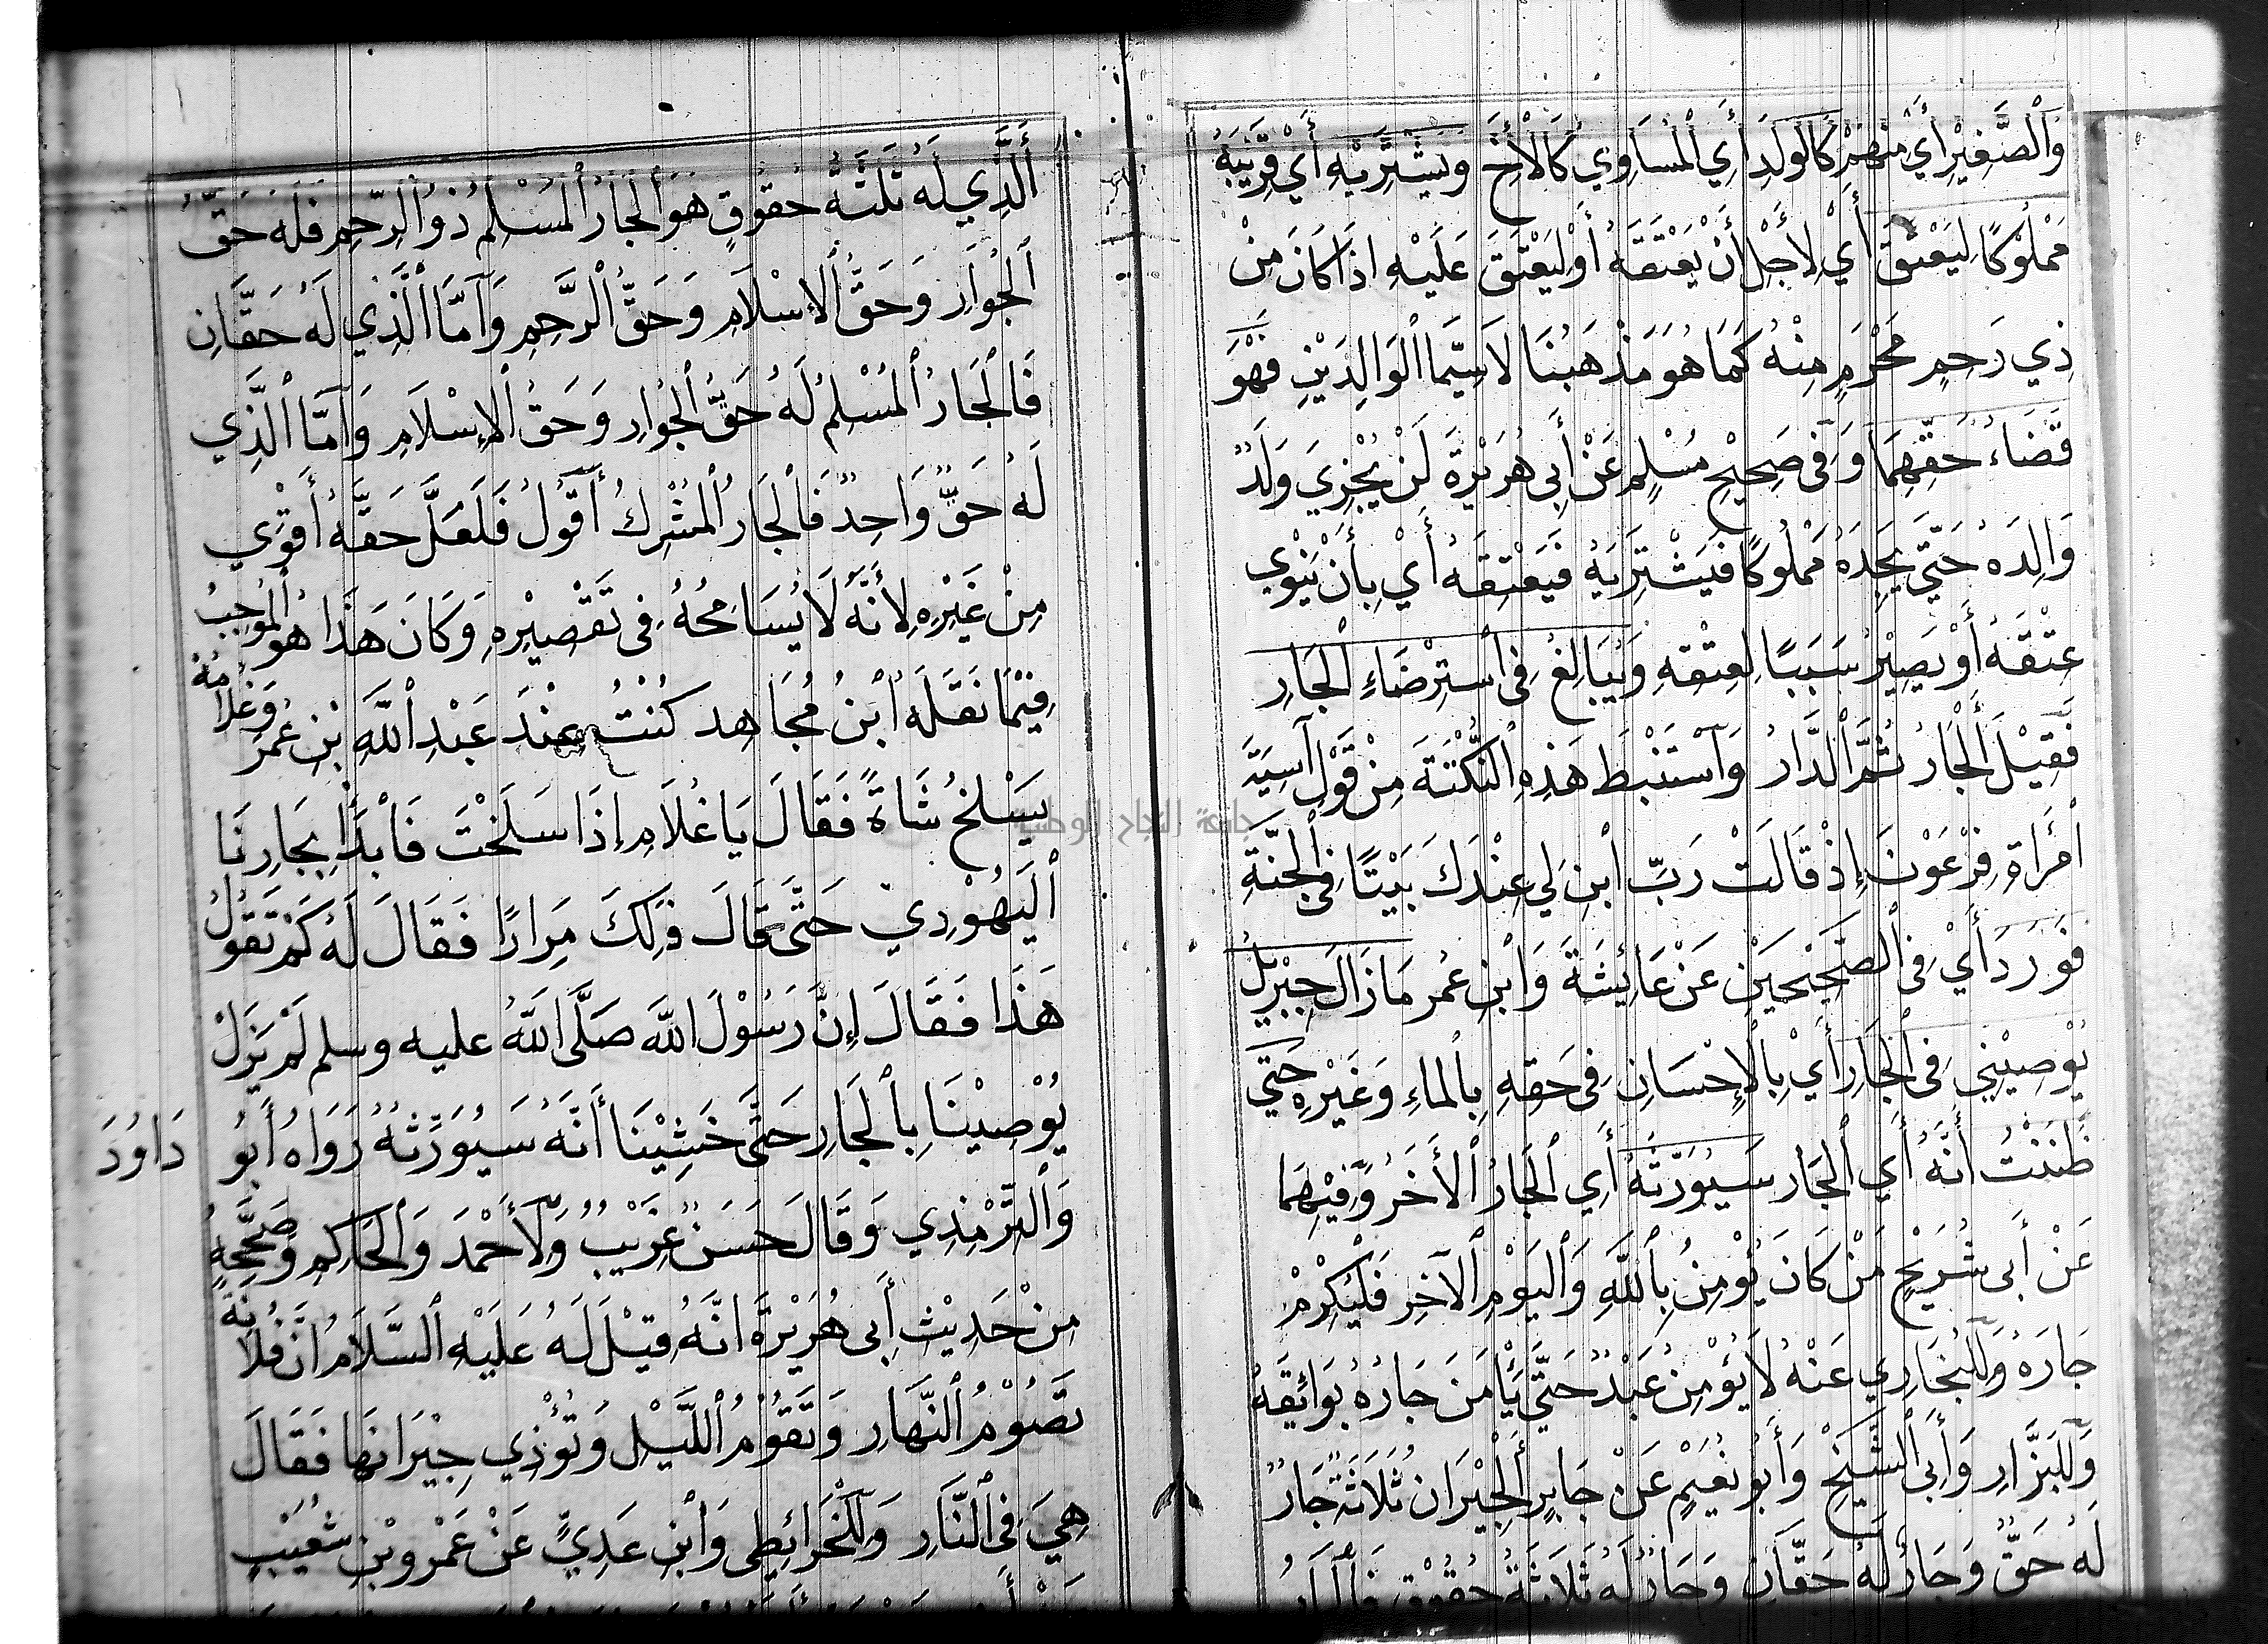 وَالصَّغِيْرِ أَيْ مِنْهُمْ كَالوَلَدِ أَيِ الْمُسَاوِي كَالْأَخِ وَيَشْتَرِيْهِ أَيْ قَرِيْبَهُ
مَمْلُوْكًا لِيَعْتِقَ أَيْ لِأَجْلِ أَنْ يَعْتِقَهُ أَوْ لِيَعْتِقَ عَلَيْهِ اذَا كَانَ مِنْ
ذِي رَحِمٍ مَحْرَمٍ مِنْهُ كَمَا هُوَ مَذْهَبُنَا لَاسِيَّمَا الْوَالِدَيْنِ فَهُوَ
قَضَاءُ حَقِّهِمَا وَفِي صَحِيْحِ مُسْلِمٍ عَنْ أَبِي هُرَيْرَةَ لَنْ يُجْزِيَ وَلَدٌ
وَالِدَهُ حَتَّي يَجِدَهُ مَمْلُوكًا فَيَشْتَرِيَهُ فَيَعْتِقَهُ أَيْ بِأَنْ يَنْوِي
عِتْقَهُ أَوْ يَصِيْرُ سَبَبًا لِعِتْقِهِ وَيُبَالِغُ فِي اسْتِرْضَاءِ الْجَارِ
فَقِيْلَ الْجَارُ ثُمَّ الدَّارُ وَاسْتَنْبَطَ هَذِهِ النُّكْتَةَ مِنْ قَوْلِ آسِيَةَ
امْرَأَةِ فِرْعَوْنَ إِذْ قَالَتْ رَبِّ ابْنِ لِي عِنْدَكَ بَيْتًا فِي الْجَنَّةِ
فَوَرَدَ أَيْ فِي الصَّحِيْحَيْنِ عَنْ عَائِشَةَ وَابْنِ عُمَر مَازَالَ جِبْرِيْلُ
يُوْصِيْنِي فِي الْجَارِ أَيْ بِالْإِحْسَانِ فِي حَقِّهِ بِالْمَاءِ وَغَيْرِهِ حَتَّي
ظَنَنْتُ أَنَّهُ أَيِ الْجَار سَيُوَرِّثَهُ أَيِ الْجَارُ الْأَخَرُ وَفِيْهِمَا
عَنْ أَبِي شُرَيْحٍ مَنْ كَانَ يُؤْمِنُ بِاللَّهِ وَالْيَوْمِ الْآخِرِ فَلْيُكْرِمْ
جَارَهُ وَلِلْبُخَارِي عَنْهُ لَا يُؤْمِنُ عَبْدٌ حَتَّي يَأْمَنَ جَارُهُ بَوَائِقَهُ
وَلِلْبَزَّارِ وَأَبِي الشَّيْخِ وَأَبُو نُعَيْمٍ عَنْ جَابِرٍ الْجِيْرَانُ ثَلَاثَةٌ جَارٌ
لَهُ حَقٌّ وَجَارٌ لَهُ حَقَّانِ وَجَارٌ لَهُ ثَلَاثَةُ حُقُوْقٍ فَالْجَارُ
أَلَّذِي لَهُ ثَلَثَةُ حُقُوْقٍ هُوَ الْجَارُ الْمُسْلِمُ ذُو الرَّحِمِ فَلَهُ حَقُّ
الْجِوَارِ وَحَقُّ الْإِسْلَامِ وَحَقُّ الرَّحِمِ وَأَمَّا الَّذِي لَهُ حَقَّانِ
فَالْجَارُ الْمُسْلِمُ لَهُ حَقُّ الْجُوَارِ وَحَقُّ الْإِسْلَامِ وَأَمَّا الَّذِي
لَهُ حَقٌّ وَاحِدٌ فَالْجَارُ الْمُشْرِكُ أَقُوْلُ فَلَعَلَّ حَقَّهُ أَقْوَي
مِنْ غَيْرِهِ لِأَنَّهُ لَا يُسَامِحُهُ فِي تَقْصِيْرِهِ وَكَانَ هَذَا هُوَ الْمُوْجِبُ
فِيْمَا نَقَلَهُ ابْنُ مُجَاهِد كُنْتُ عِنْدَ عَبْدِ اللَّهِ بْنِ عُمَرَ وَغُلَامُهُ
يَسْلَخُ شَاةً فَقَالَ يَا غُلَامِ إِذَا سَلَخْتَ فَابْدَأْ بِجَارِنَا
الْيَهُوْدِي حَتَّى قَالَ ذَلِكَ مِرَارًا فَقَالَ لَهُ كَمْ تَقُوْلُ
هَذَا فَقَالَ إِنَّ رَسُوْلَ اللَّهِ صَلَّى اللَّهُ عليه وسلم لَمْ يَزَلْ
يُوْصِيْنَا بِالْجَارِ حَتَّى خَشِيْنَا أَنَّهُ سَيُوَرِّثهُ رَوَاهُ أَبُو دَاوُدَ
وَالتِّرْمِذِي وَقَالَ حَسَنٌ غَرِيْبٌ وَلِأَحْمَدَ وَالْحَاكِمِ وَصَحَّحَهُ
مِنْ حَدِيْثِ أَبِي هُرَيْرَةَ انَّهُ قِيْلَ لَهُ عَلَيْهِ السَّلَامُ انَّ فُلَانَةَ
تَصُوْمُ النَّهَارِ وَتَقُوْمُ اللَّيْلِ وَتُؤْذِي جِيْرَانَهَا فَقَالَ
هِيَ فِي النَّارِ وَلِلْخَرَائِطِي وَابْنِ عَدِيٍّ عَنْ عَمْرِو بْنِ شُعَيْبٍ
جامعة النجاح الوطنية